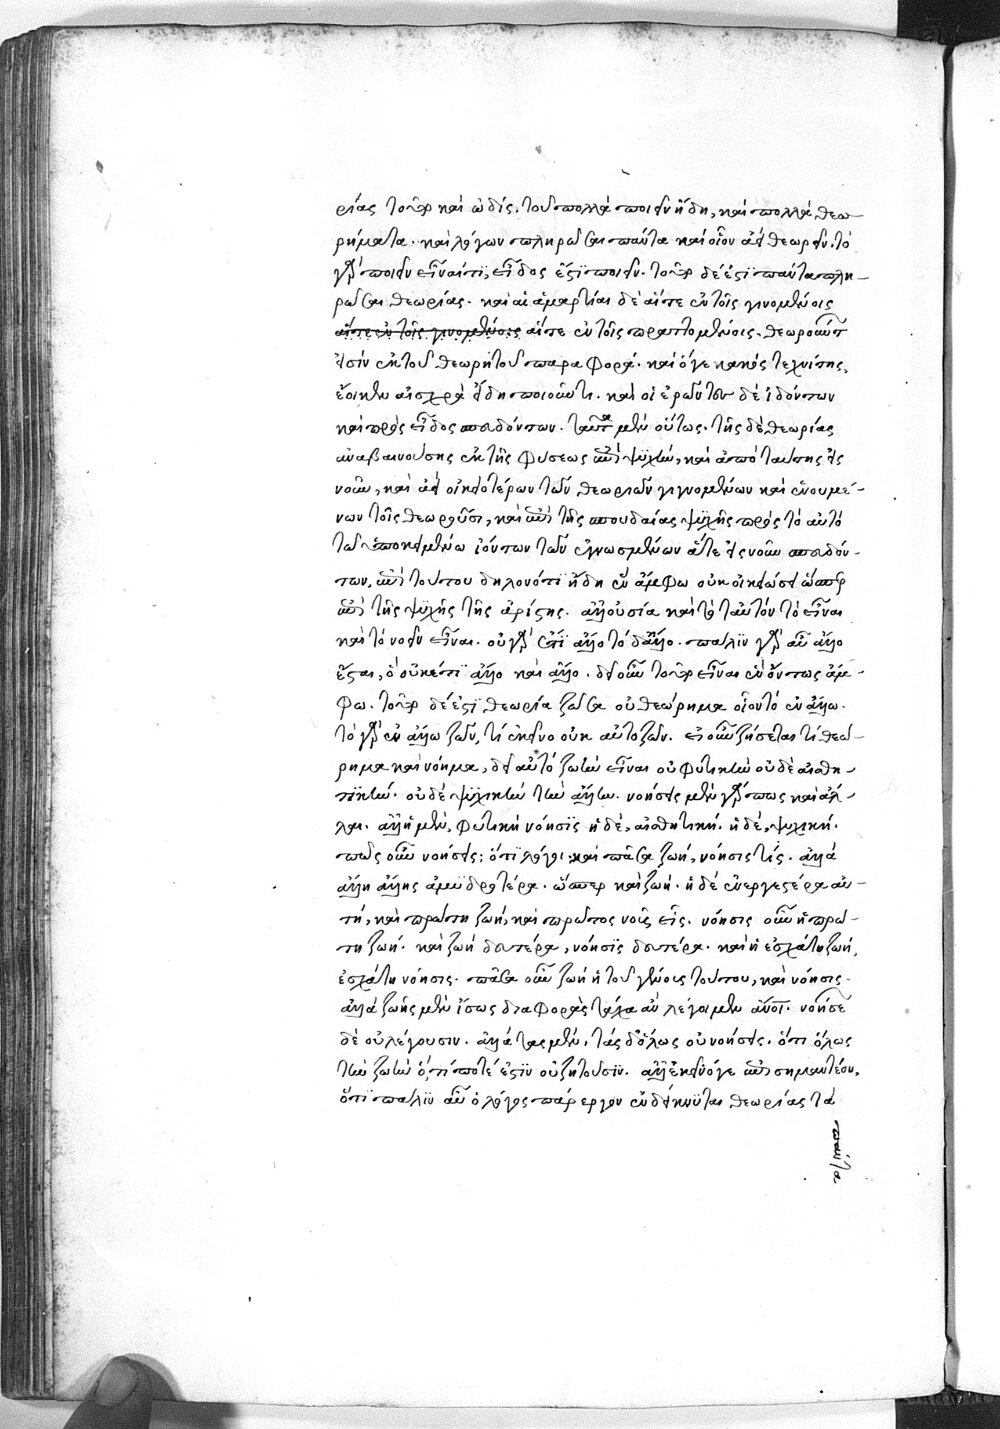 ρίας τοῦτο καὶ ὠδίς, τοῦ πολλὰ ποιεῖν εἴδη, καὶ πολλὰ θεω-
ρήματα· καὶ λόγων πληρῶσαι πάντα καὶ οἷον ἀεὶ θεωρεῖν· τὸ
γὰρ ποιεῖν εἶναί τι, εἶδος ἐστὶ ποιεῖν· τοῦτο δέ ἐστι πάντα πλη-
ρῶσαι θεωρίας· καὶ αἱ ἁμαρτίαι δὲ αἵτε ἐν τοῖς γινομένοις
αἵτε ἐν τοῖς γινομένοις αἵτε ἐν τοῖς πραττομένοις, θεωρούντων
εἰσὶν ἐκ τοῦ θεωρητοῦ παραφορά· καὶ ὅγε κακὸς τεχνίτης,
ἔοικεν αἰσχρὰ εἴδη ποιοῦντι· καὶ οἱ ἐρῶντες δὲ ἰδόντων
καὶ πρὸς εἶδος σπευδόντων. ταῦτα μὲν οὕτως· τῆς δὲ θεωρίας
ἀναβαινούσης ἐκ τῆς φύσεως ἐπὶ ψυχὴν, καὶ ἀπὸ ταύτης εἰς
νοῦν, καὶ ἀεὶ οἰκειοτέρων τῶν θεωριῶν γιγνομένων καὶ ἑνουμέ-
νων τοῖς θεωροῦσι, καὶ ἐπὶ τῆς σπουδαίας ψυχῆς πρὸς τὸ αὐτὸ
τῷ ὑποκειμένῳ ἰόντων τῶν ἐγνωσμένων ἅτε εἰς νοῦν σπευδόν-
των, ἐπὶ τούτου δηλονότι ἤδη ἓν ἄμφω οὐκ οἰκειώσει ὥσπερ
ἐπὶ τῆς ψυχῆς τῆς ἀρίστης· ἀλλ' οὐσίᾳ καὶ τῷ ταὐτὸν τὸ εἶναι
καὶ τὸ νοεῖν εἶναι· οὐ γὰρ ἔτι ἄλλο τὸ δ' ἄλλο· πάλιν γὰρ αὖ ἄλλο
ἔσται, ὃ οὐκέτι ἄλλο καὶ ἄλλο· δεῖ οὖν τοῦτο εἶναι ἓν ὄντως ἄμ-
φω. τοῦτο δέ ἐστι θεωρία ζῶσα οὐ θεώρημα οἷον τὸ ἐν ἄλλῳ·
τὸ γὰρ ἐν ἄλλῳ ζῶν, τι ἐκεῖνο οὐκ αὐτοζῶν. εἰ οὖν ζήσεται τι θεώ-
ρημα καὶ νόημα, δεῖ αὐτὸ ζωὴν εἶναι οὐ φυτικὴν οὐδὲ αἰσθη-
τικὴν· οὐδὲ ψυχικὴν τὴν ἄλλην. νοήσεις μὲν γάρ πως καὶ ἄλ-
λαι· ἀλλ' ἡ μὲν, φυτικὴ νόησις ἡ δὲ, αἰσθητική· ἡ δὲ, ψυχική.
πῶς οὖν νοήσεις; ὅτι λόγοι· καὶ πᾶσα ζωὴ, νόησίς τις· ἀλλὰ
ἄλλη ἄλλης ἀμυδροτέρα· ὥσπερ καὶ ζωή· ἡ δὲ ἐνεργεστέρα αὕ-
τη, καὶ πρώτη ζωὴ, καὶ πρῶτος νοῦς εἷς. νόησις οὖν ἡ πρώ-
τη ζωή· καὶ ζωὴ δευτέρα, νόησις δευτέρα· καὶ ἡ ἐσχάτη ζωὴ,
ἐσχάτη νόησις· πᾶσα οὖν ζωὴ ἡ τοῦ γένους τούτου, καὶ νόησις.
ἀλλὰ ζωῆς μὲν ἴσως διαφορὰς τάχα ἂν λέγοιμεν ἄνθρωποι· νοήσεων
δὲ οὐ λέγουσιν· ἀλλὰ τὰς μὲν, τὰς δ' ὅλως οὐ νοήσεις· ὅτι ὅλως
τὴν ζωὴν ὅ,τι ποτέ ἐστιν οὐ ζητοῦσιν. ἀλλ' ἐκεῖνό γε ἐπισημαντέον,
ὅτι πάλιν αὖ ὁ λόγος πάρεργον ἐνδείκνυται θεωρίας τὰ
πάντα